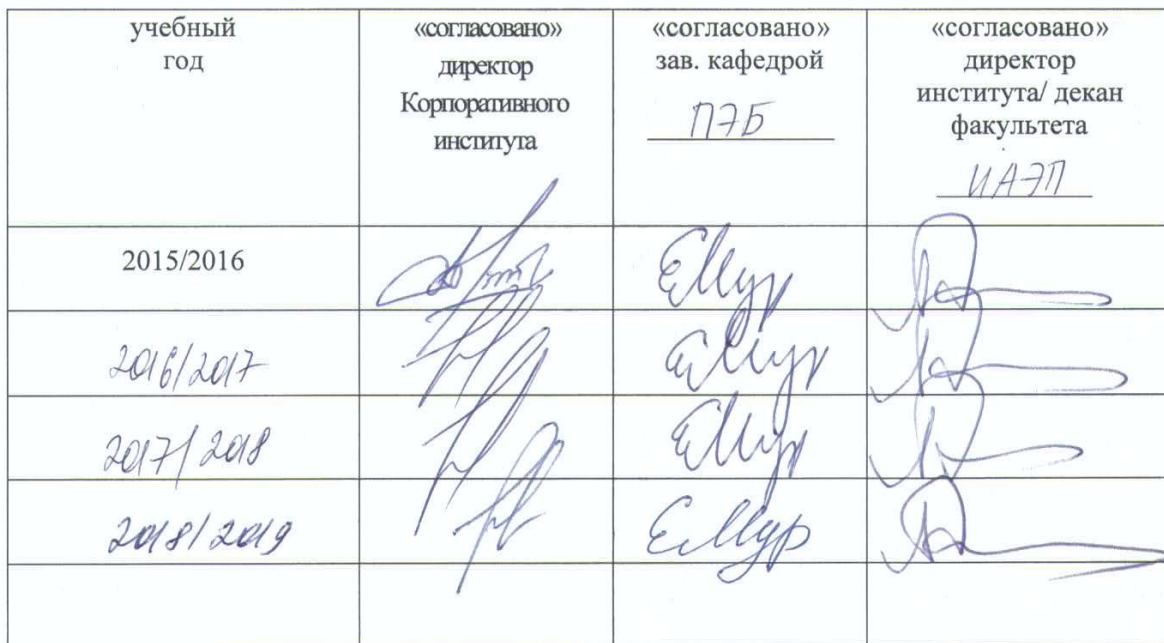 учебный
год
«согласовано»
директор
Корпоративного
института
«согласовано»
зав. кафедрой
ПЭБ
«согласовано»
директор
института/ декан
факультета
ИАЭП
2015/2016
ЕМур
2016/2017
ЕМур
2017/2018
ЕМур
2018/2019
ЕМур